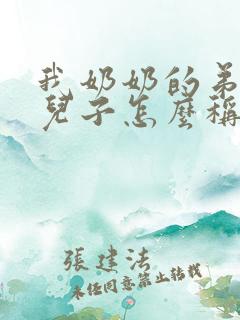 我奶奶的弟
兒子怎麼稱
張建法
未任同意禁止转载